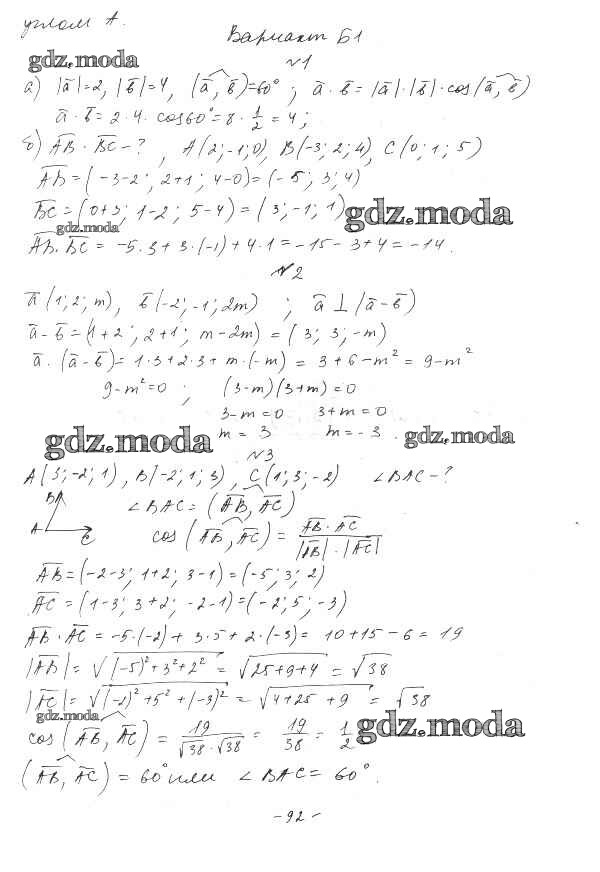 углом А.
Вариант Б1
gdz.moda
№1
а) |a̅|=2, |b̅|=4, (a̅, b̅)=60° ; a̅ · b̅ = |a̅|·|b̅|·cos(a̅, b̅)
a̅ · b̅ = 2·4·cos60° = 8 · 1/2 = 4;
б) AB · BC - ? , A(2;-1;0), B(-3;2;4), C(0;1;5)
AB = (-3-2; 2+1; 4-0) = (-5; 3; 4)
BC = (0+3; 1-2; 5-4) = (3;-1;1) gdz.moda
gdz.moda
AB·BC = -5·3+3·(-1)+4·1 = -15-3+4 = -14.
№2
a̅(1;2;m), b̅(-2;-1;2m) ; a̅ ⊥ (a̅-b̅)
a̅-b̅ = (1+2; 2+1; m-2m) = (3; 3; -m)
a̅ · (a̅-b̅) = 1·3+2·3+m·(-m) = 3+6-m² = 9-m²
9-m²=0 ; (3-m)(3+m)=0
3-m=0 3+m=0
gdz.moda m = 3 m = -3. gdz.moda
№3
A(3;-2;1), B(-2;1;3), C(1;3;-2) ∠BAC-?
B ∠BAC = (AB, AC)
A C cos(AB, AC) = AB · AC / |AB|·|AC|
AB = (-2-3; 1+2; 3-1) = (-5; 3; 2)
AC = (1-3; 3+2; -2-1) = (-2; 5; -3)
AB · AC = -5·(-2) + 3·5 + 2·(-3) = 10+15-6 = 19
|AB| = √(-5)²+3²+2² = √25+9+4 = √38
|AC| = √(-2)²+5²+(-3)² = √4+25+9 = √38
gdz.moda
cos(AB, AC) = 19/√38·√38 = 19/38 = 1/2 gdz.moda
(AB, AC) = 60° или ∠BAC = 60°.
- 92 -